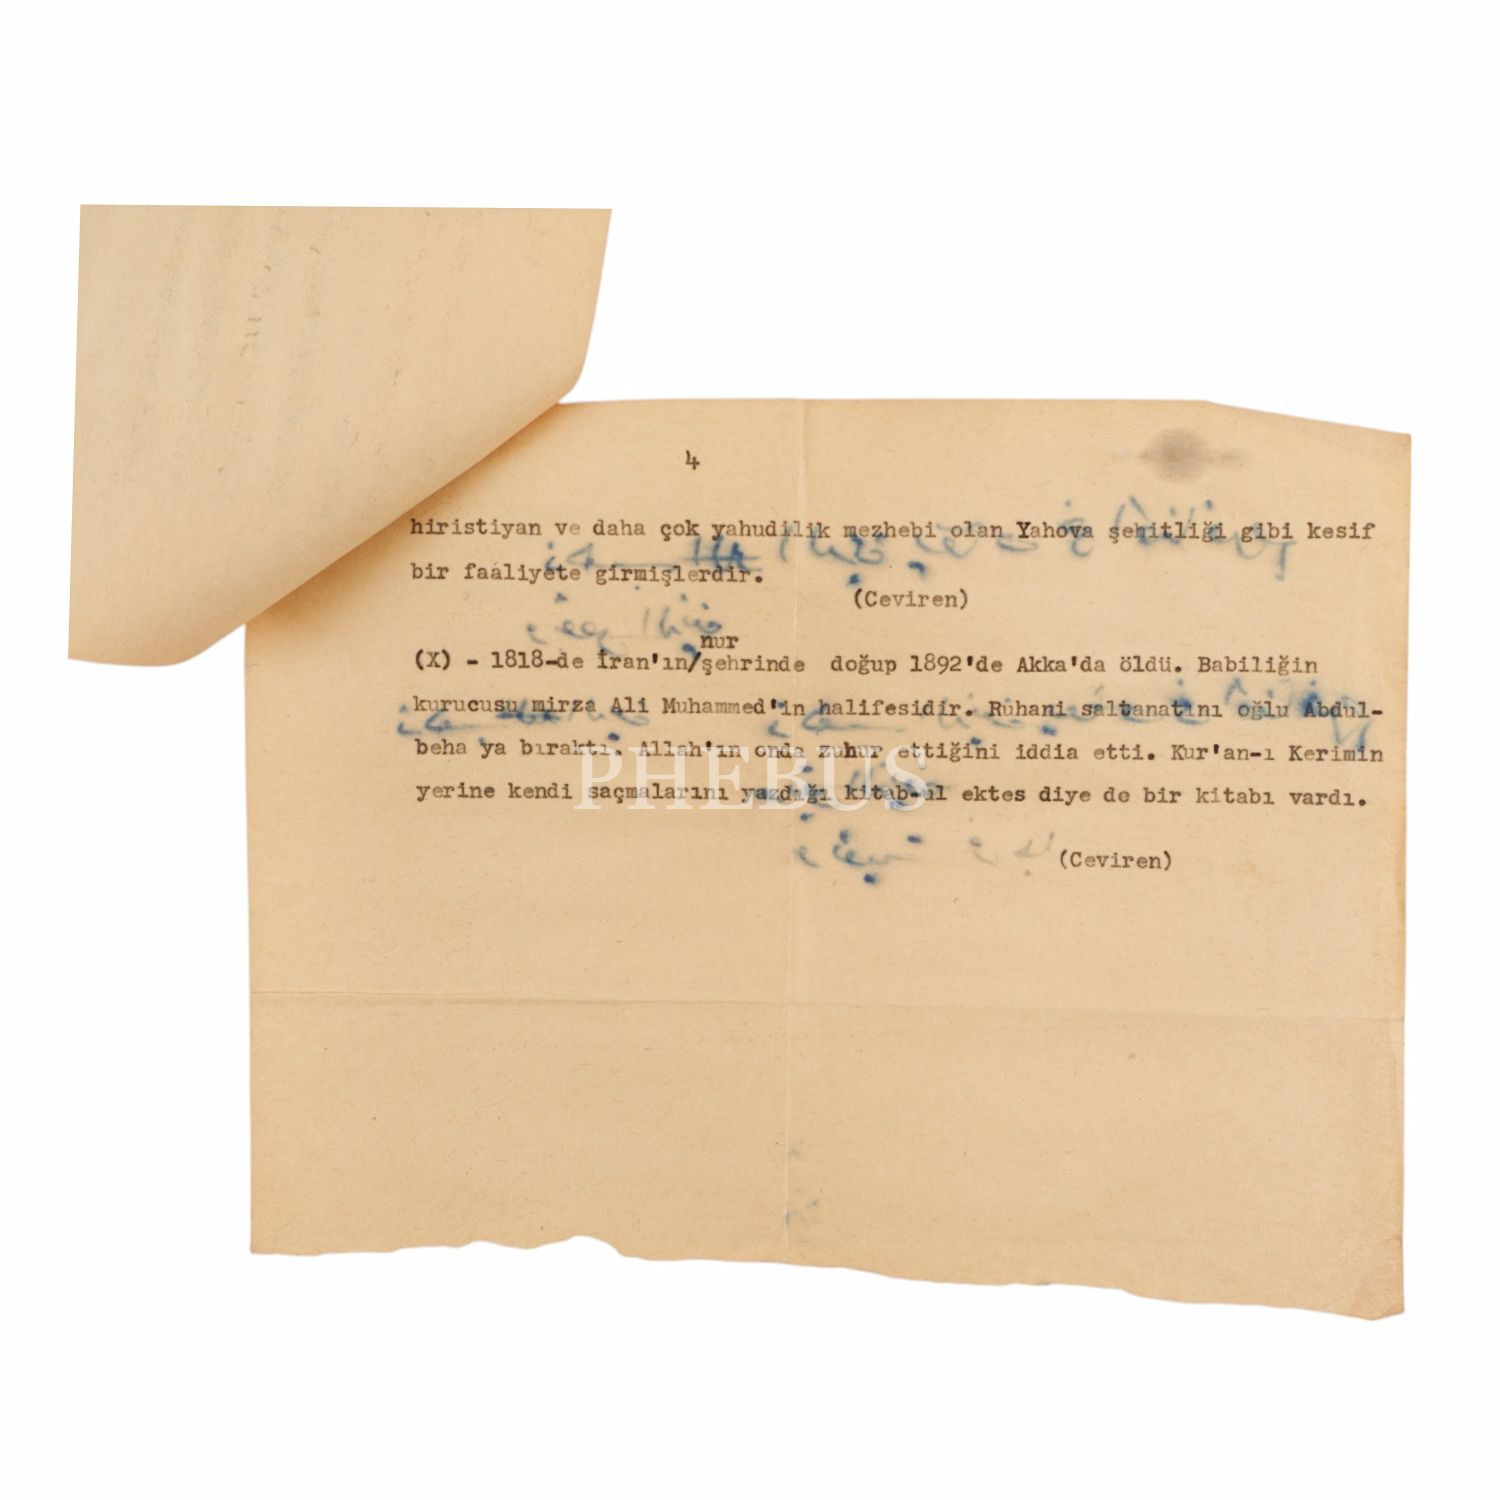 4
hiristiyan ve daha çok yahudilik mezhebi olan Yahova şehitliği gibi kesif
bir faáliyete girmişlerdir.
(Ceviren)
nur
(X) - 1818-de İran'ın/şehrinde doğup 1892'de Akka'da öldü. Babiliğin
kurucusu mirza Ali Muhammed'in halifesidir. Ruhani saltanatını oğlu Abdul-
beha ya bıraktı. Allah'ın onda zuhur ettiğini iddia etti. Kur'an-ı Kerimin
yerine kendi saçmalarını yazdığı kitab-ul ektes diye de bir kitabı vardı.
PHEBUS
(Ceviren)